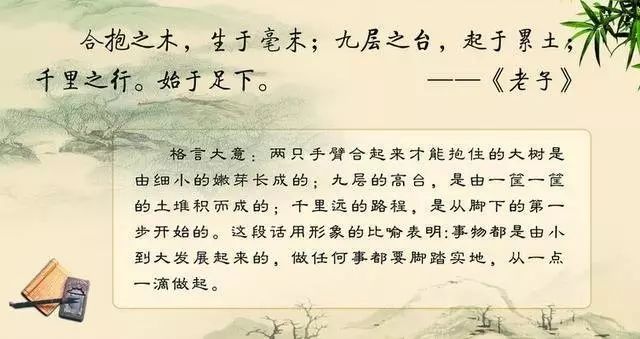 合抱之木，生于毫末；九层之台，起于累土；
千里之行。始于足下。 ——《老子》
格言大意：两只手臂合起来才能抱住的大树是
由细小的嫩芽长成的；九层的高台，是由一筐一筐
的土堆积而成的；千里远的路程，是从脚下的第一
步开始的。这段话用形象的比喻表明:事物都是由小
到大发展起来的，做任何事都要脚踏实地，从一点
一滴做起。